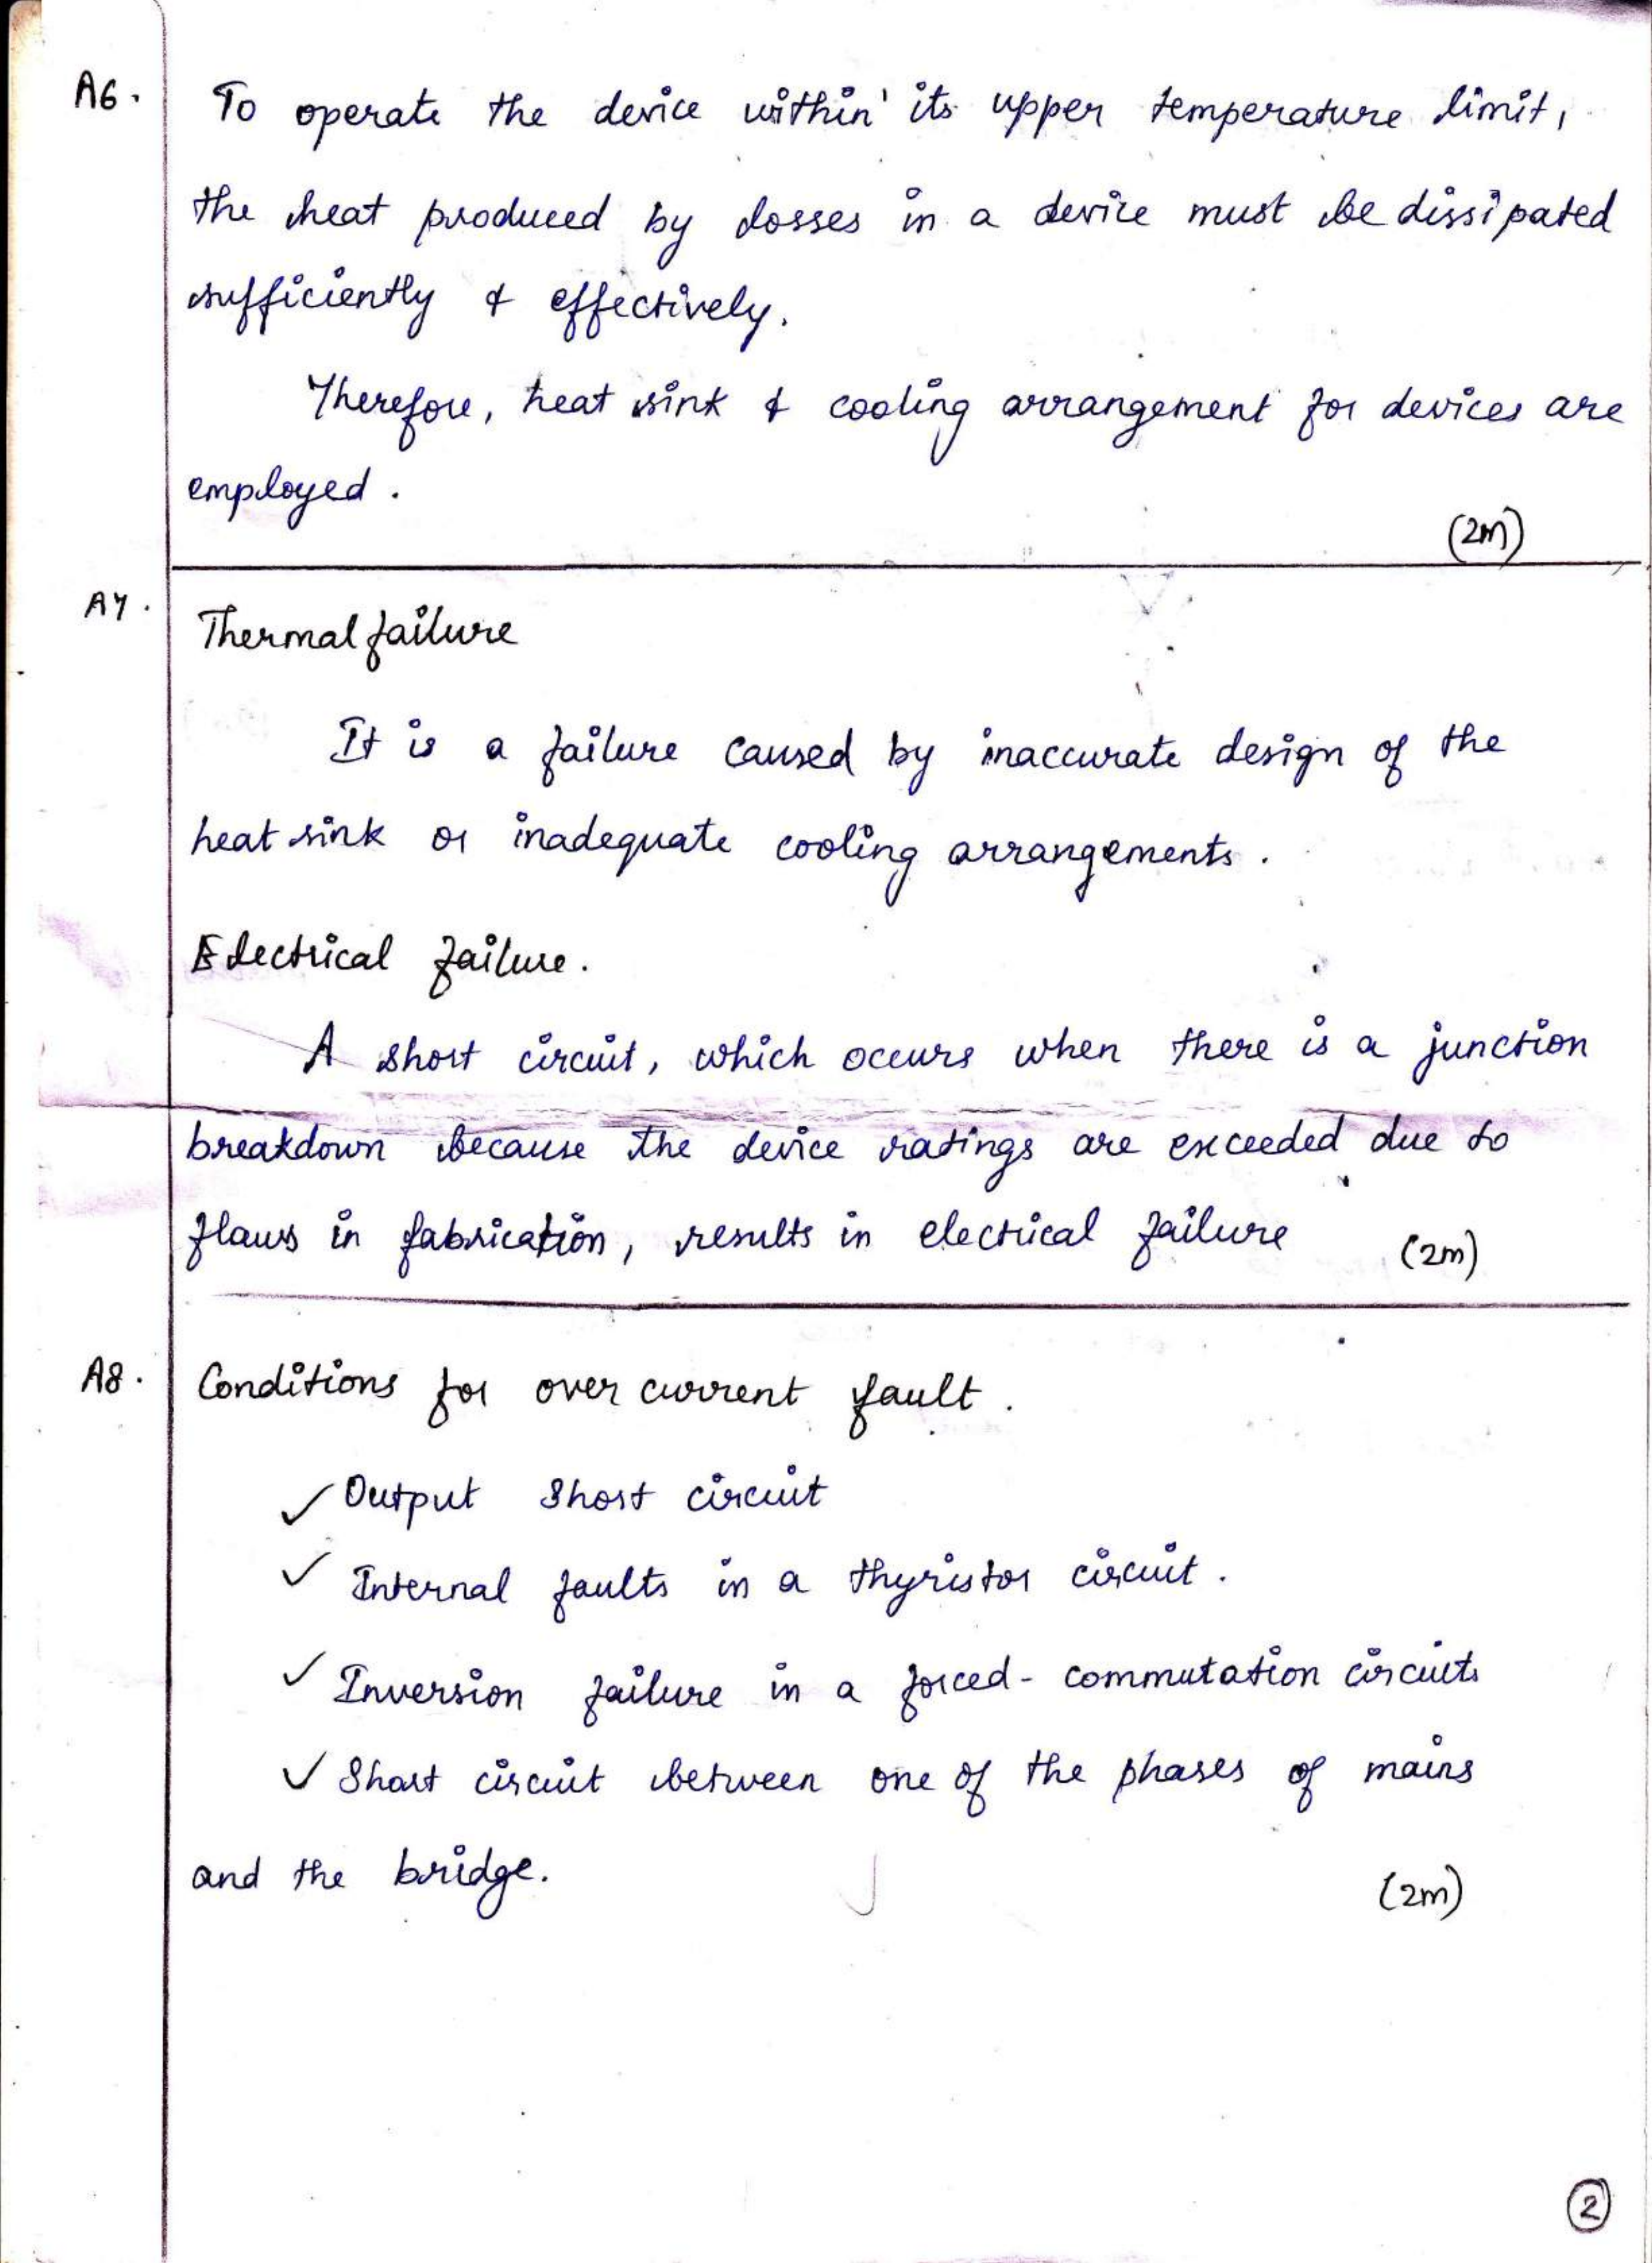 A6. To operate the device within its upper temperature limit,
the heat produced by losses in a device must be dissipated
sufficiently & effectively.
Therefore, heat sink & cooling arrangement for devices are
employed.
(2m)
A7. Thermal failure
It is a failure caused by inaccurate design of the
heat sink or inadequate cooling arrangements.
Electrical failure.
A short circuit, which occurs when there is a junction
breakdown because the device ratings are exceeded due to
flaws in fabrication, results in electrical failure (2m)
A8. Conditions for over current fault.
✓ Output short circuit
✓ Internal faults in a thyristor circuit.
✓ Inversion failure in a forced-commutation circuits
✓ Short circuit between one of the phases of mains
and the bridge. (2m)
2